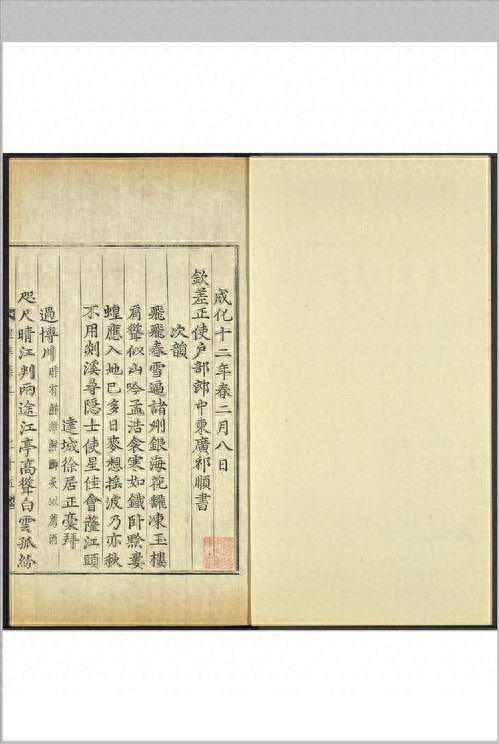 成化十二年春二月八日
欽差正使户部郎中東廣祁順書
次韻
飛飛春雪遍諸州銀海花飜凍玉樓
肩聳似山吟孟浩衾寒如鐵卧黔婁
蝗應入地已多日麥想搖波乃亦秋
不用剡溪尋隱士使星佳會薩江頭
達城徐居正藁拜
過博川
咫尺晴江判兩途江亭高聳白雲孤